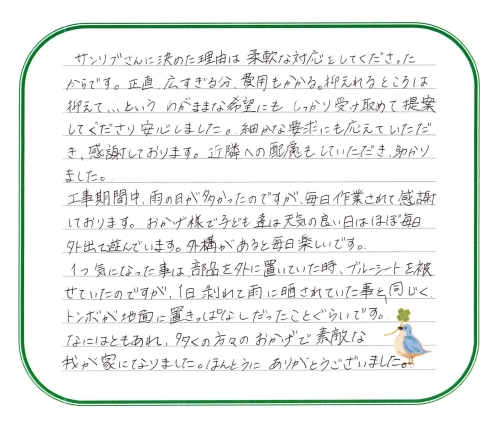 サンリブさんに決めた理由は 柔軟な対応をしてくださった
からです。正直、広すぎる分、費用もかかる。抑えれるところは
抑えて…という わがままな希望にも しっかり受け止めて 提案
してくださり 安心しました。細かな要求にも応えていただ
き、感謝しております。近隣への配慮もしていただき、助かり
ました。
工事期間中、雨の日が多かったのですが、毎日作業されて感謝
しております。おかげ様で子ども達は天気の良い日はほぼ毎日
外出て遊んでいます。外構があると毎日楽しいです。
1つ気になった事は、部品を外に置いていた時、ブルーシートを被
せていたのですが、1日剥れて雨に晒されていた事と、同じく、
トンボが地面に置きっぱなしだったことぐらいです。
なにはともあれ、多くの方々のおかげで 素敵な
我が家になりました。ほんとうに ありがとうございました。